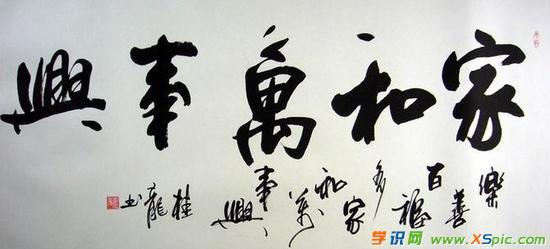 家和萬事興
樂善百福多家和萬事興
桂龍书
学识网 www.XSpic.com